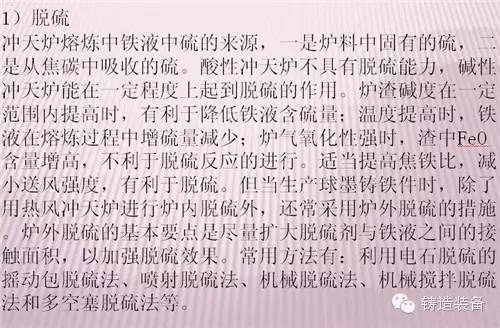 1）脱硫
冲天炉熔炼中铁液中硫的来源，一是炉料中固有的硫，二
是从焦碳中吸收的硫。酸性冲天炉不具有脱硫能力，碱性
冲天炉能在一定程度上起到脱硫的作用。炉渣碱度在一定
范围内提高时，有利于降低铁液含硫量；温度提高时，铁
液在熔炼过程中增硫量减少；炉气氧化性强时，渣中FeO
含量增高，不利于脱硫反应的进行。适当提高焦铁比，减
小送风强度，有利于脱硫。但当生产球墨铸铁件时，除了
用热风冲天炉进行炉内脱硫外，还常采用炉外脱硫的措施
。炉外脱硫的基本要点是尽量扩大脱硫剂与铁液之间的接
触面积，以加强脱硫效果。常用方法有：利用电石脱硫的
摇动包脱硫法、喷射脱硫法、机械脱硫法、机械搅拌脱硫
法和多空塞脱硫法等。
铸造装备